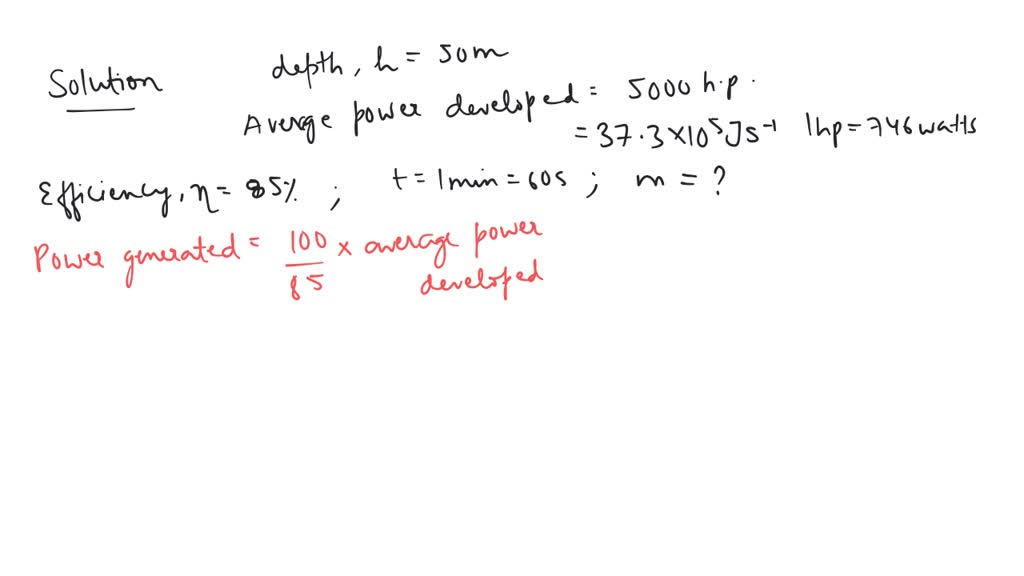 Solution
depth, h = 50m
Average power developed = 5000 h.p.
= 37.3 × 10⁵ Js⁻¹ 1hp = 746 watts
Efficiency, η = 85% ; t = 1min = 60s ; m = ?
Power generated = 100/85 × average power
developed